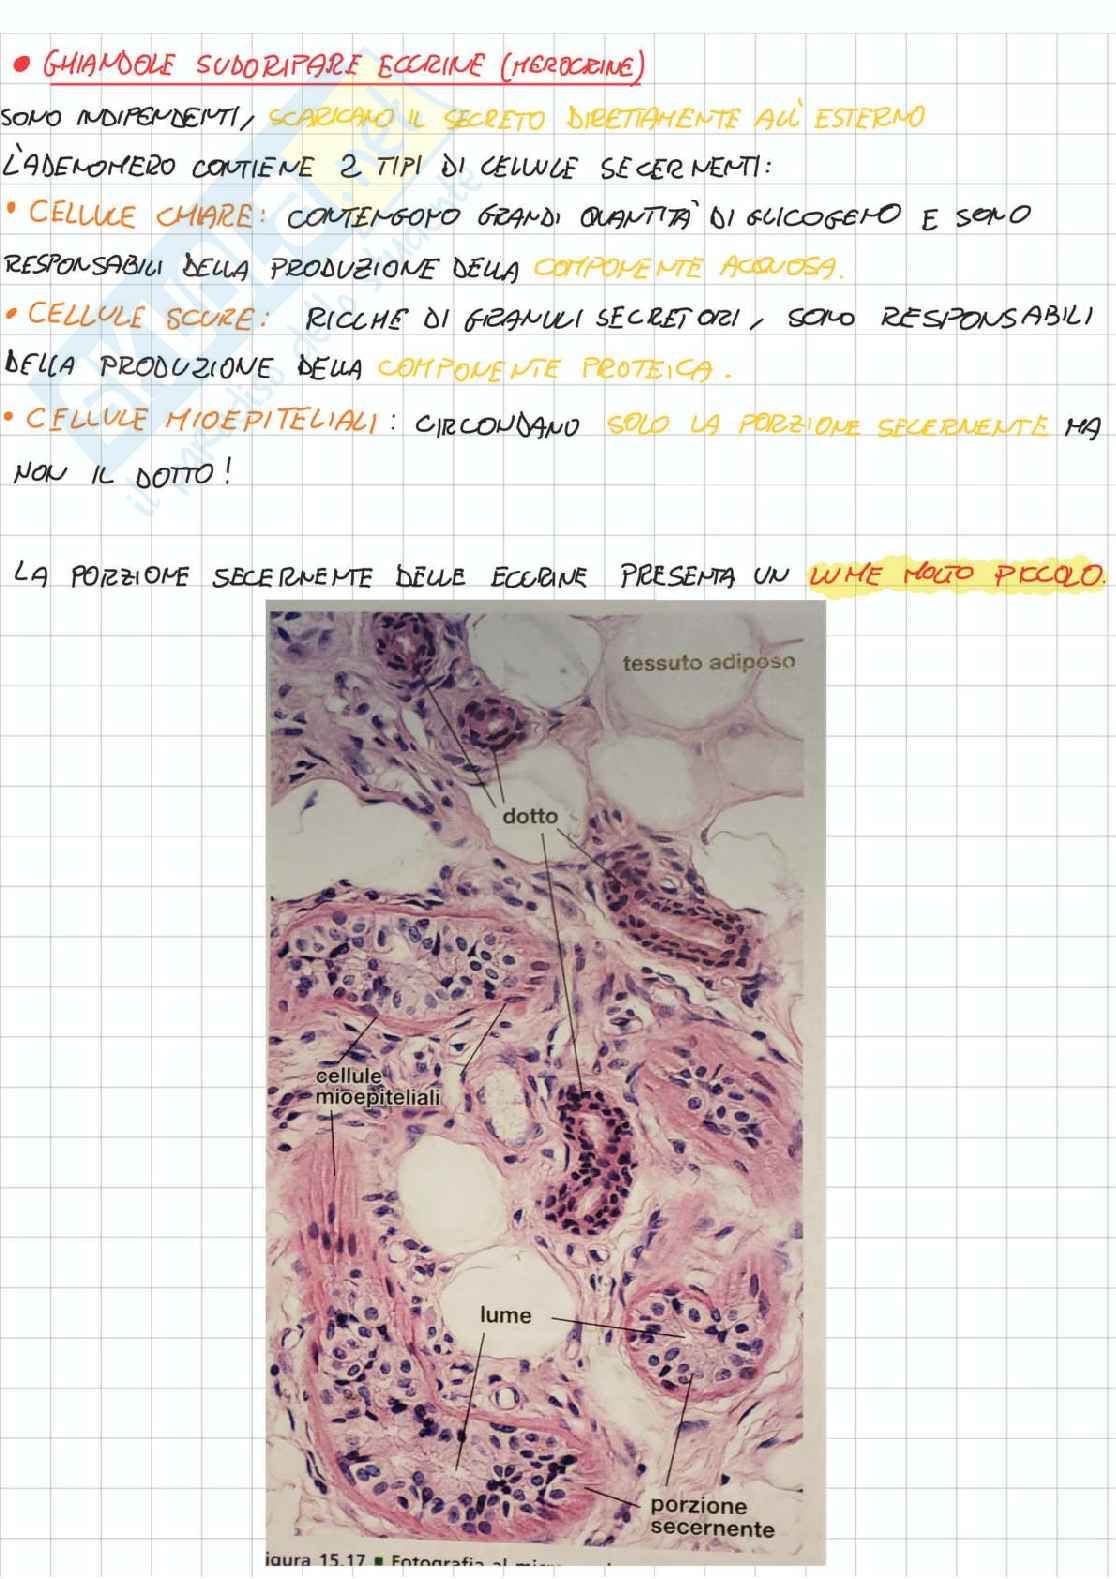 • GHIANDOLE SUDORIPARE ECCRINE (MEROCRINE)
SONO INDIPENDENTI, SCARICANO IL SECRETO DIRETTAMENTE ALL'ESTERNO
L'ADENOMERO CONTIENE 2 TIPI DI CELLULE SECERNENTI:
• CELLULE CHIARE: CONTENGONO GRANDI QUANTITÀ DI GLICOGENO E SONO
RESPONSABILI DELLA PRODUZIONE DELLA COMPONENTE ACQUOSA.
• CELLULE SCURE: RICCHE DI GRANULI SECRETORI, SONO RESPONSABILI
DELLA PRODUZIONE DELLA COMPONENTE PROTEICA.
• CELLULE MIOEPITELIALI: CIRCONDANO SOLO LA PORZIONE SECERNENTE MA
NON IL DOTTO!
LA PORZIONE SECERNENTE DELLE ECCRINE PRESENTA UN LUME MOLTO PICCOLO.
tessuto adiposo
dotto
cellule
mioepiteliali
lume
porzione
secernente
igura 15.17 ■ Fotografia al
il paradiso dello studente